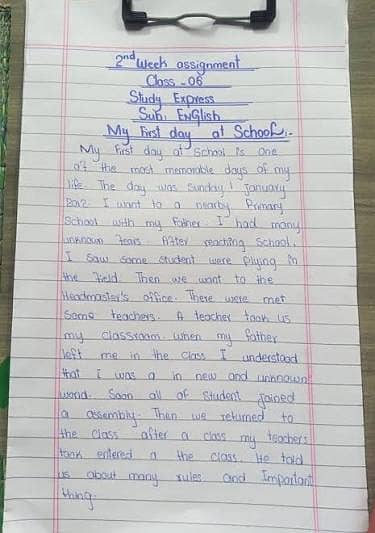 2nd Week assignment
Class - 06
Study Express
Sub: English
My First day at School.
My First day at School is one
of the most memorable days of my
life. The day was Sunday 1 January
2012 I want to a nearby Primary
School with my Father. I had many
unknown fears. After reaching School,
I saw some student were plying in
the field. Then we want to the
Headmaster's office. There were met
some teachers. A teacher took us
my classroom. when my father
left me in the class I understood
that I was a in new and unknown
world. Soon all of student joined
a assembly. Then we returned to
the class after a class my teachers
took entered a the class. He told
us about many rules and Important
thing.